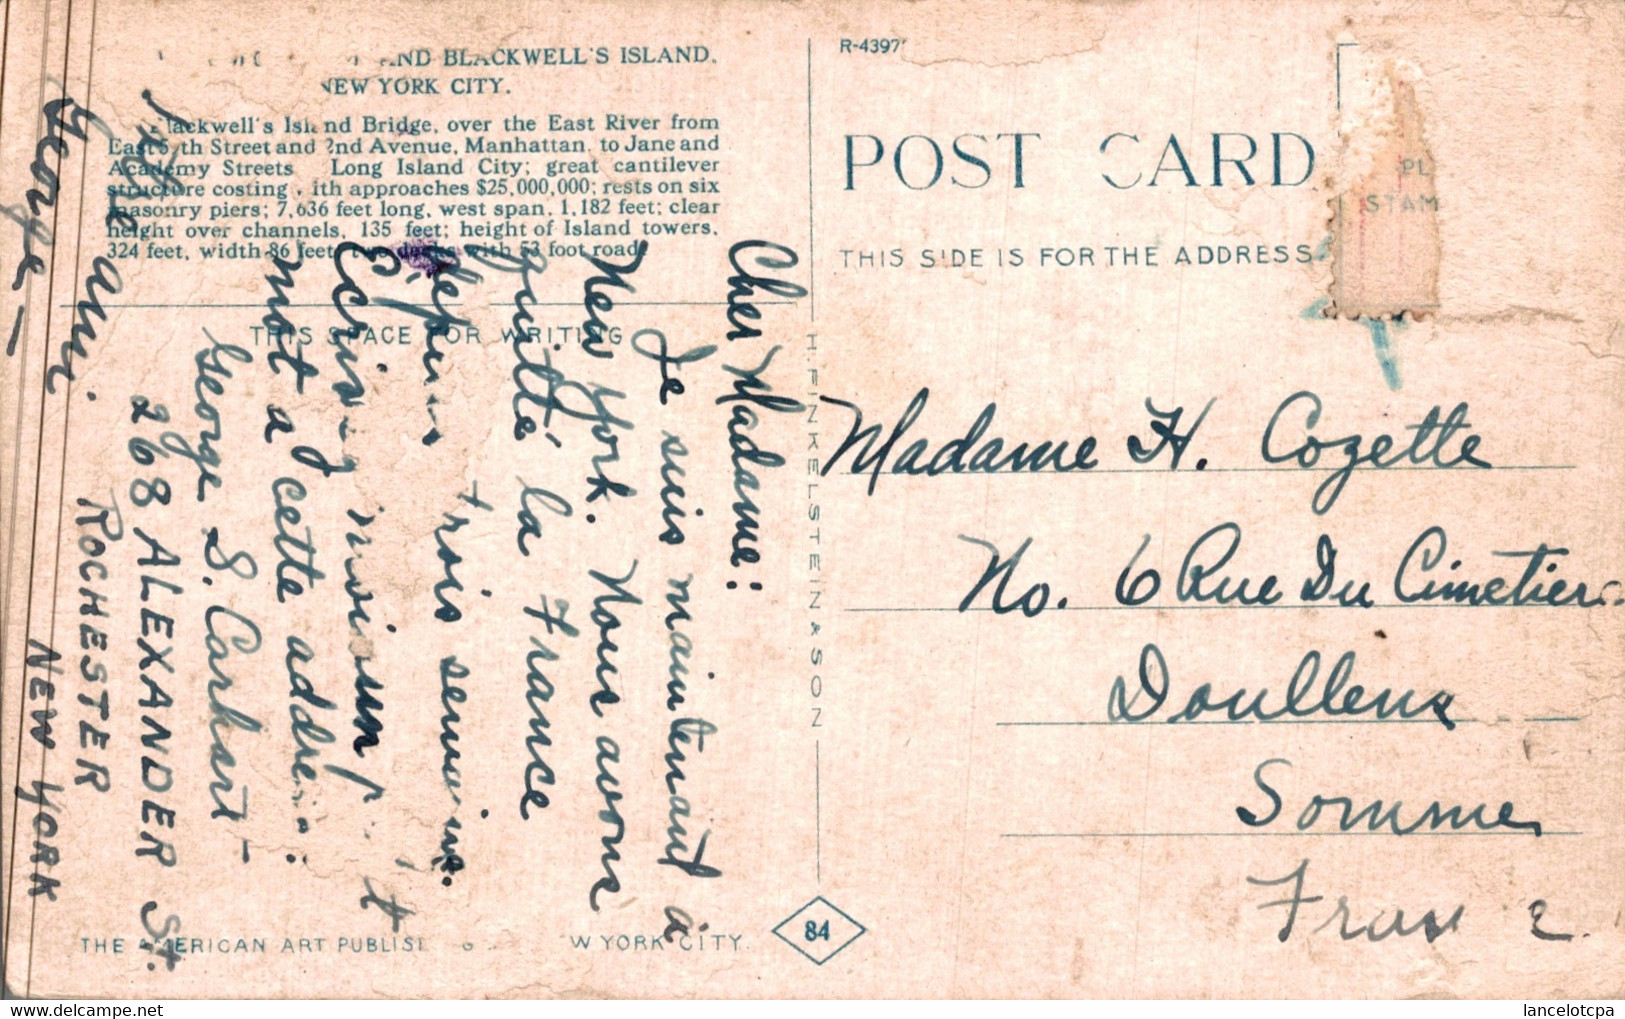 AND BLACKWELL'S ISLAND,
NEW YORK CITY.
Blackwell's Island Bridge, over the East River from
East 5 th Street and 2nd Avenue, Manhattan, to Jane and
Academy Streets Long Island City; great cantilever
structure costing with approaches $25,000,000; rests on six
masonry piers; 7,636 feet long, west span, 1,182 feet; clear
height over channels, 135 feet; height of Island towers,
324 feet, width 86 feet, two decks with 53 foot road
THIS SPACE FOR WRITING
Cher Madame:
Je suis maintenant à
New York. Nous avons
quitté la France
depuis trois semaines.
mot a cette address:
George S. Carhart -
268 ALEXANDER St.
ROCHESTER
NEW YORK
Votre ami.
George -
THE AMERICAN ART PUBLIS W YORK CITY.
H. FINKELSTEIN & SON
84
R-4397
POST CARD
THIS SIDE IS FOR THE ADDRESS
PL
STAM
Madame H. Cozette
No. 6 Rue Du Cimetiere
Doullens
Somme
France.
lancelotcpa